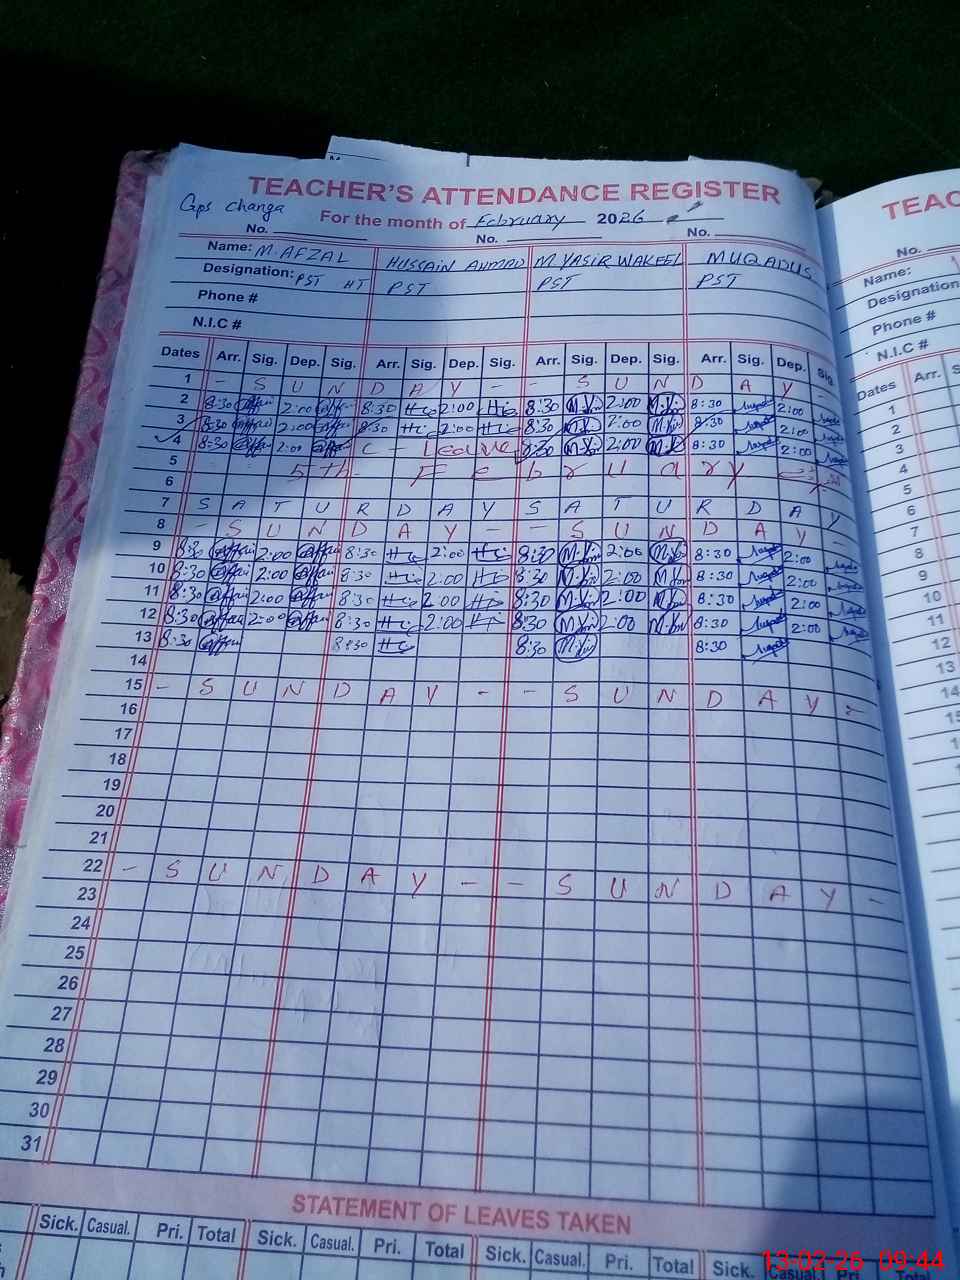 TEACHER'S ATTENDANCE REGISTER
Gps Changa
For the month of February 2026
No. No. No.
Name: M. AFZAL HUSSAIN AHMAD M. YASIR WAKEEL MUQADUS
Designation: PST HT PST PST PST
Phone #
N.I.C #
Dates Arr. Sig. Dep. Sig. Arr. Sig. Dep. Sig. Arr. Sig. Dep. Sig. Arr. Sig. Dep. Sig.
1 - S U N D A Y - - S U N D A Y -
2 8:30 2:00 8:30 2:00 8:30 2:00 8:30 2:00
3 8:30 2:00 8:30 2:00 8:30 2:00 8:30 2:00
4 8:30 2:00 C - Leave 8:30 2:00 8:30 2:00
5 5th February
6
7 S A T U R D A Y S A T U R D A Y
8 - S U N D A Y - - S U N D A Y -
9 8:30 2:00 8:30 2:00 8:30 2:00 8:30 2:00
10 8:30 2:00 8:30 2:00 8:30 2:00 8:30 2:00
11 8:30 2:00 8:30 2:00 8:30 2:00 8:30 2:00
12 8:30 2:00 8:30 2:00 8:30 2:00 8:30 2:00
13 8:30 8:30 8:30 8:30
14
15 - S U N D A Y - - S U N D A Y -
16
17
18
19
20
21
22 - S U N D A Y - - S U N D A Y -
23
24
25
26
27
28
29
30
31
STATEMENT OF LEAVES TAKEN
Sick. Casual. Pri. Total Sick. Casual. Pri. Total Sick. Casual. Pri. Total Sick. Casual. Pri. Total
TEAC
No.
Name:
Designation
Phone #
N.I.C #
Dates Arr.
1
2
3
4
5
6
7
8
9
10
11
12
13
14
13-02-26 09:44